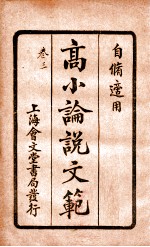 自脩適用
高小論說文範
卷三
上海會文堂書局發行